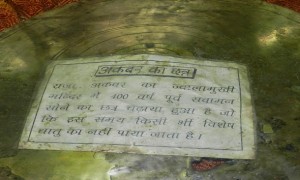 अकबर का छत्र
राजा अकबर का ज्वालामुखी
मन्दिर में 400 वर्ष पूर्व सवामन
सोने का छत्र चढ़ाया हुआ है जो
कि इस समय किसी भी विशेष
धातु का नहीं पाया जाता है।